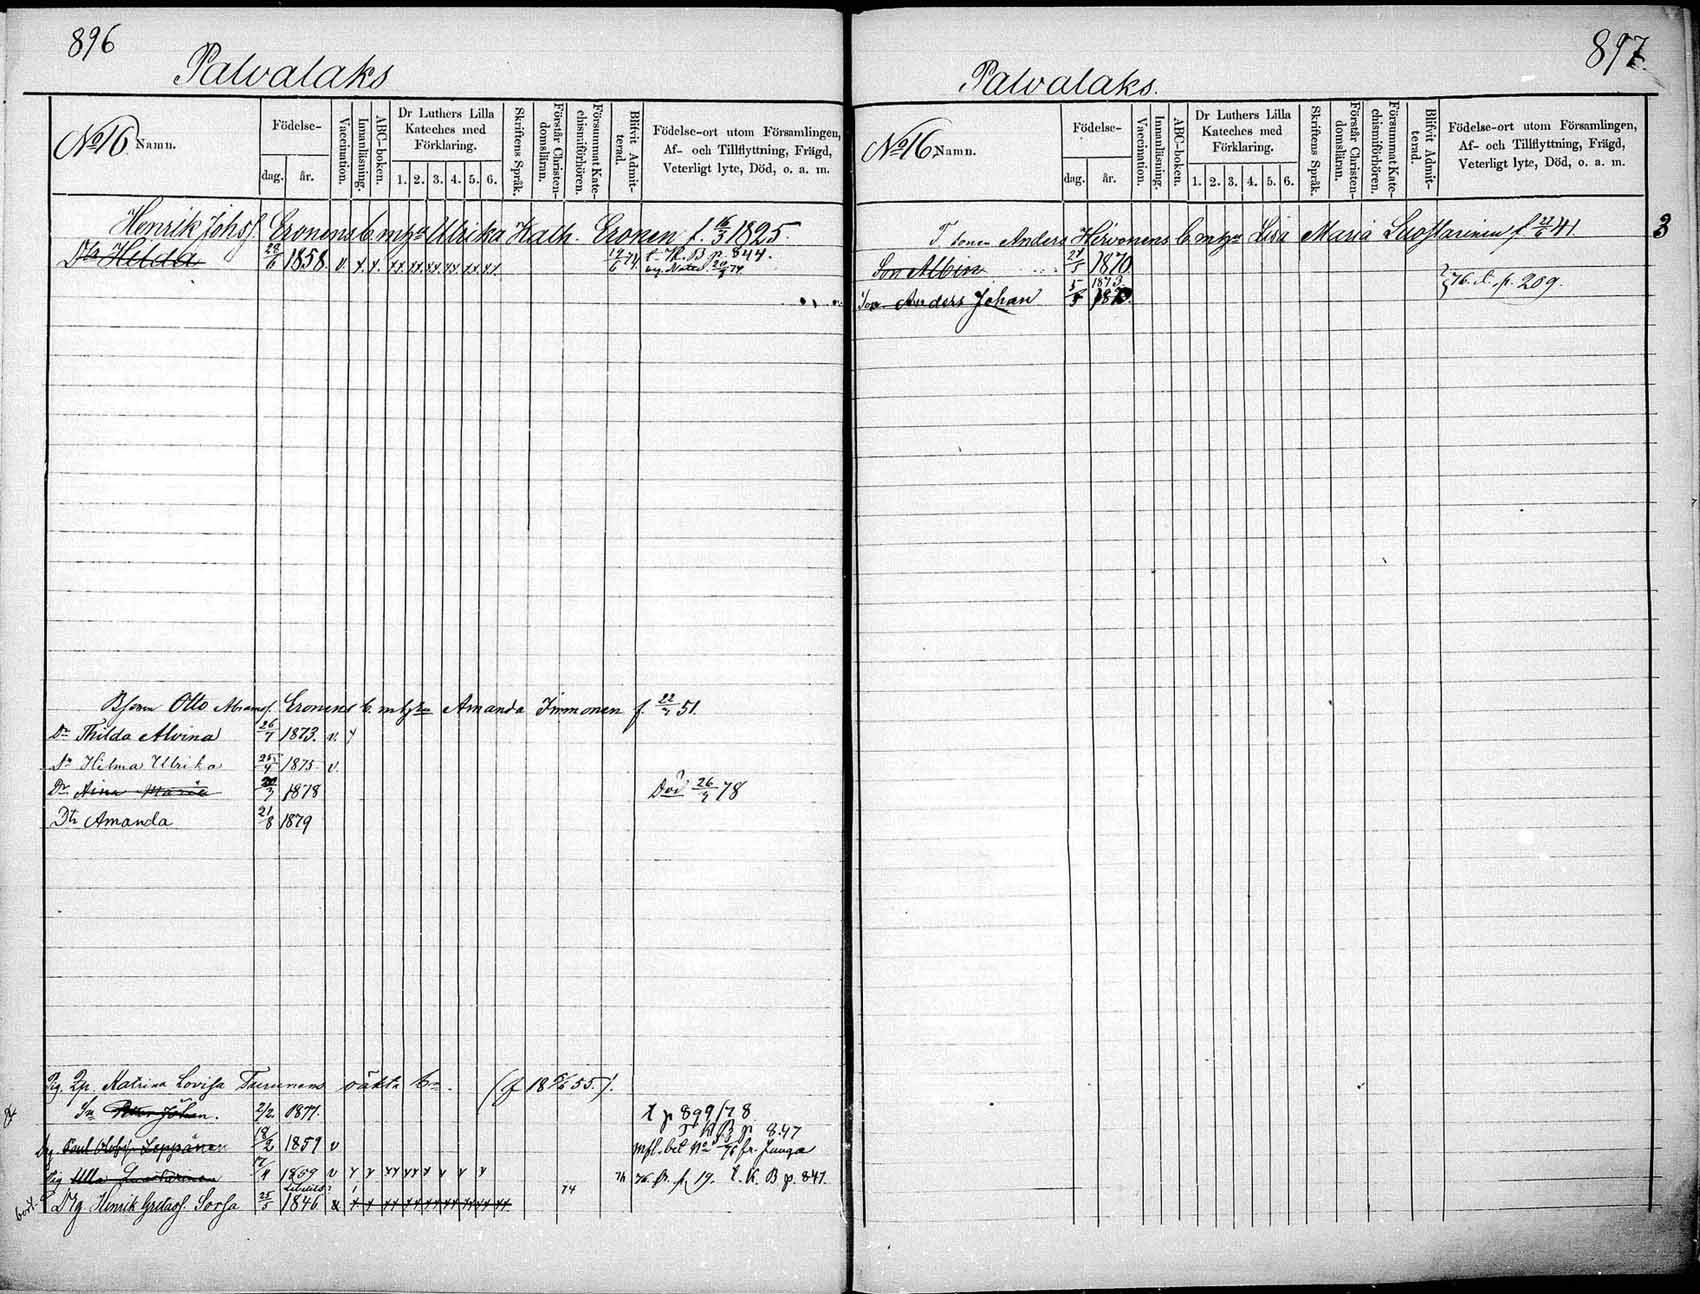 896
Palvalaks
No 16 Namn.
Födelse-
dag. år.
Vaccination.
Innanläsning.
ABC-boken.
Dr Luthers Lilla Kateches med Förklaring.
1. 2. 3. 4. 5. 6.
Skriftens Språk.
Förstår Christendomslänn.
Försummat Katechismiförhören.
Blifvit Admitterad.
Födelse-ort utom Församlingen,
Af- och Tillflyttning, Frägd,
Veterligt lyte, Död, o. a. m.
Henrik Johsf. Eronens b. m hu Ulrika Kath. Eronen f. 16/3 1825.
Dtr Hilda 1858. v. 12/6 74 t. K. B p. 844.
Otto Abramsf. Eronens b. m hu Amanda Immonen f. 51.
Dr Thilda Alvina 26/7 1873. v.
Dr Hilma Ulrika 25/4 1875 v.
Dr Aina Maria 1878 Död 78
Dtr Amanda 21/8 1879
Pig. Katrina Lovisa Turunens oäkta bn. (f 18 55).
Sn Johan. 2/2. 1877. t p 899/78
T K B p 847
Drg Paul Olofsf. Leppänen 18/2 1859 v fr. Junga
Pig Ulla 1859 v t. K. B p. 841.
bort. Drg Henrik Sorsa 25/5 1846 74
897
Palvalaks.
No 16 Namn.
Födelse-
dag. år.
Vaccination.
Innanläsning.
ABC-boken.
Dr Luthers Lilla Kateches med Förklaring.
1. 2. 3. 4. 5. 6.
Skriftens Språk.
Förstår Christendomslänn.
Försummat Katechismiförhören.
Blifvit Admitterad.
Födelse-ort utom Församlingen,
Af- och Tillflyttning, Frägd,
Veterligt lyte, Död, o. a. m.
Anders Hirvonens b. m hu Lisa Maria Suostarinen f 41
3
Son Albin 1870
Son Anders Johan 1873. 76. t. p. 209.